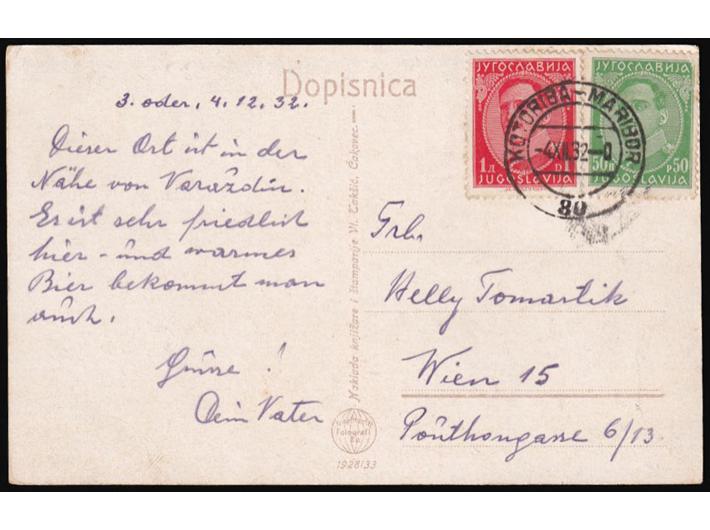 Dopisnica
3. oder, 4.12.32.
Dieser Ort ist in der
Nähe von Varaždin.
Es ist sehr friedlich
hier - und warmes
Bier bekommt man
auch.
Grüsse!
Dein Vater
Nakladа knjižare i štamparije Vl. Čakovec
Fotografi
1928/33
ЈУГОСЛАВИЈА
1Д D1
JUGOSLAVIJA
ЈУГОСЛАВИЈА
50П P50
JUGOSLAVIJA
KOTORIBA-MARIBOR
-4.XII.32-0
80
Frl.
Helly Tomartik
Wien 15
Pouthongasse 6/13